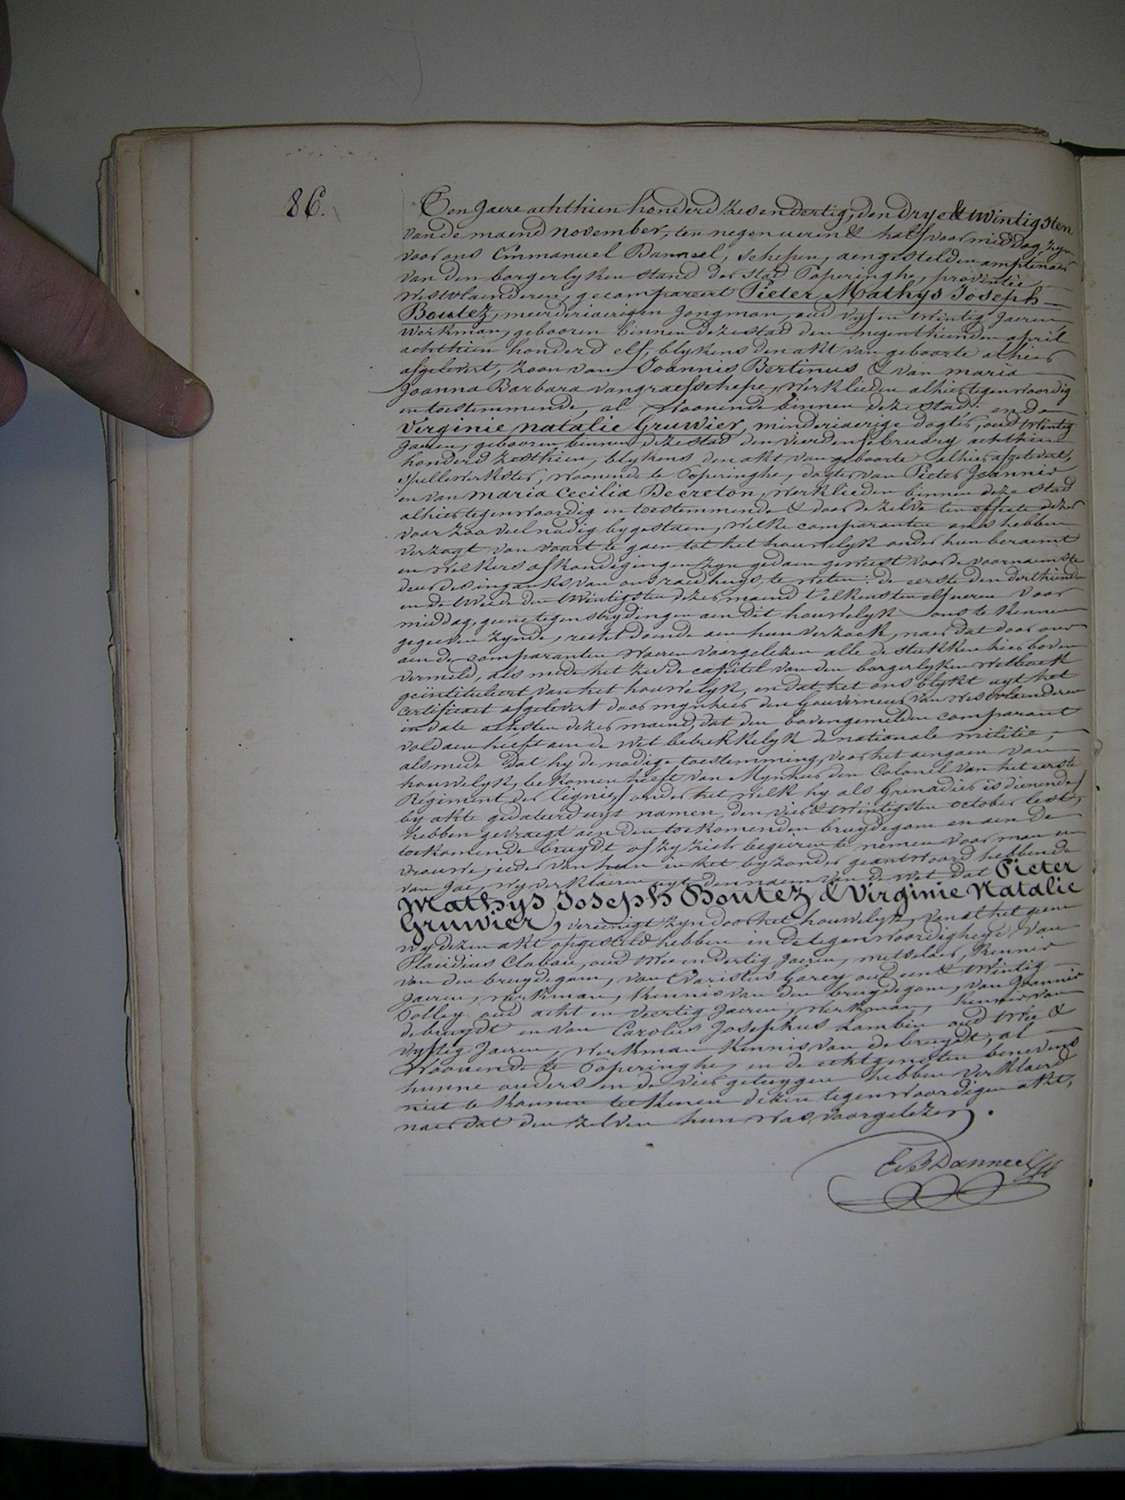 86.
Den Jaere achthien honderd zes en dertig, den drye & twintigsten
van de maend november, ten negen ueren & half voormiddag, zyn
voor ons Emmanuel Danneel, Schepen, aengestelden amptenaer
van den borgerlyken stand der stad Poperinghe, provintie
Westvlaenderen, gecompareert Pieter Mathys Joseph
Boutez, meerderjaerigen Jongman, oud vyf en twintig Jaeren
Werkman, gebooren binnen deze stad den negenthienden april
achthien honderd elf, blykens den akt van geboorte alhier
afgelevert, zoon van Joannis Bertinus & van maria
Joanna Barbara Vangraefschepe, Werklieden alhier tegenwoordig
en toestemmende, al Woonende binnen deze stad: en de
Virginie natalie Gruwier, minderjaerige dogter, oud twintig
Jaeren, gebooren binnen deze stad den vierden february achthien
honderd zesthien, blykens den akt van geboorte alhier afgelevert,
spellewerkster, Woonende te Poperinghe, dogter van Pieter Joannis
en van maria Cecilia Decreton, Werklieden binnen deze stad
alhier tegenwoordig en toestemmende & door de zelve ten effecte dezer
voor zoo veel nodig bygestaen, welke comparanten ons hebben
verzogt van voort te gaen tot het houwelyk onder hun beraemt
en welkers afkondigingen zyn gedaen geweest voor de voornaemste
deur des ingangs van ons raedhuys, te weten: de eerste den derthienden
en de tweede den twintigsten dezer maend t'elkens ten elf ueren voor
middag, geene tegenstrydingen aen dit houwelyk ons te kennen
gegeeven zynde, recht doende aen hun verzoek, naer dat door ons
aen de comparanten waeren voorgelezen alle de stukken hierboven
vermeld, als mede het zesde capittel van den borgerlyken wetboek
geïntituleert van het houwelyk, en dat het ons blykt uyt het
certificaet afgelevert door mynheer den Gouverneur van Westvlaenderen
in date achsten dezer maend, dat den bovengemelden comparant
voldaen heeft aen de wet betrekkelyk de nationale militie,
alsmede dat hy de nodige toestemming, voor het aengaen van
houwelyk, bekomen heeft van Mynheer den Colonel van het eerste
Regiment der lignie, onder het welk hy als Grenadier is dienende
by akte gedateerd uyt namen, den vier & twintigsten october lest,
hebben gevraegt aen den toekomenden bruydegom en aen de
toekomende bruydt of zy zich begeeren te nemen voor man en
vrouwe, ieder van hun in het byzonder geantwoord hebbende
van Jae, wy verklaeren uyt den naem van de wet dat Pieter
Mathys Joseph Boutez & Virginie Natalie
Gruwier, vereenigt zyn door het houwelyk, van al het geene
wy dezen akt opgesteld hebben in de tegenwoordigheyd van
Placidius Clabau, oud twee en dertig Jaeren, metselaer, Kennis
van den bruydegom, van Evaristus Garey oud een & twintig
Jaeren, werkman, Kennis van den bruydegom, van Joannis
Tolley oud acht en veertig Jaeren, Werkman, Kennis van
de bruydt en van Carolus Josephus Lambin oud twee &
vyftig Jaeren, Werkman Kennis van de bruydt, al
Woonende te Poperinghe, en de echtgenoten benevens
hunne ouders en de vier getuygen hebben verklaerd
niet te konnen teekenen dezen tegenwoordigen akt,
naer dat den zelven hun was voorgelezen.
E. J. Danneel